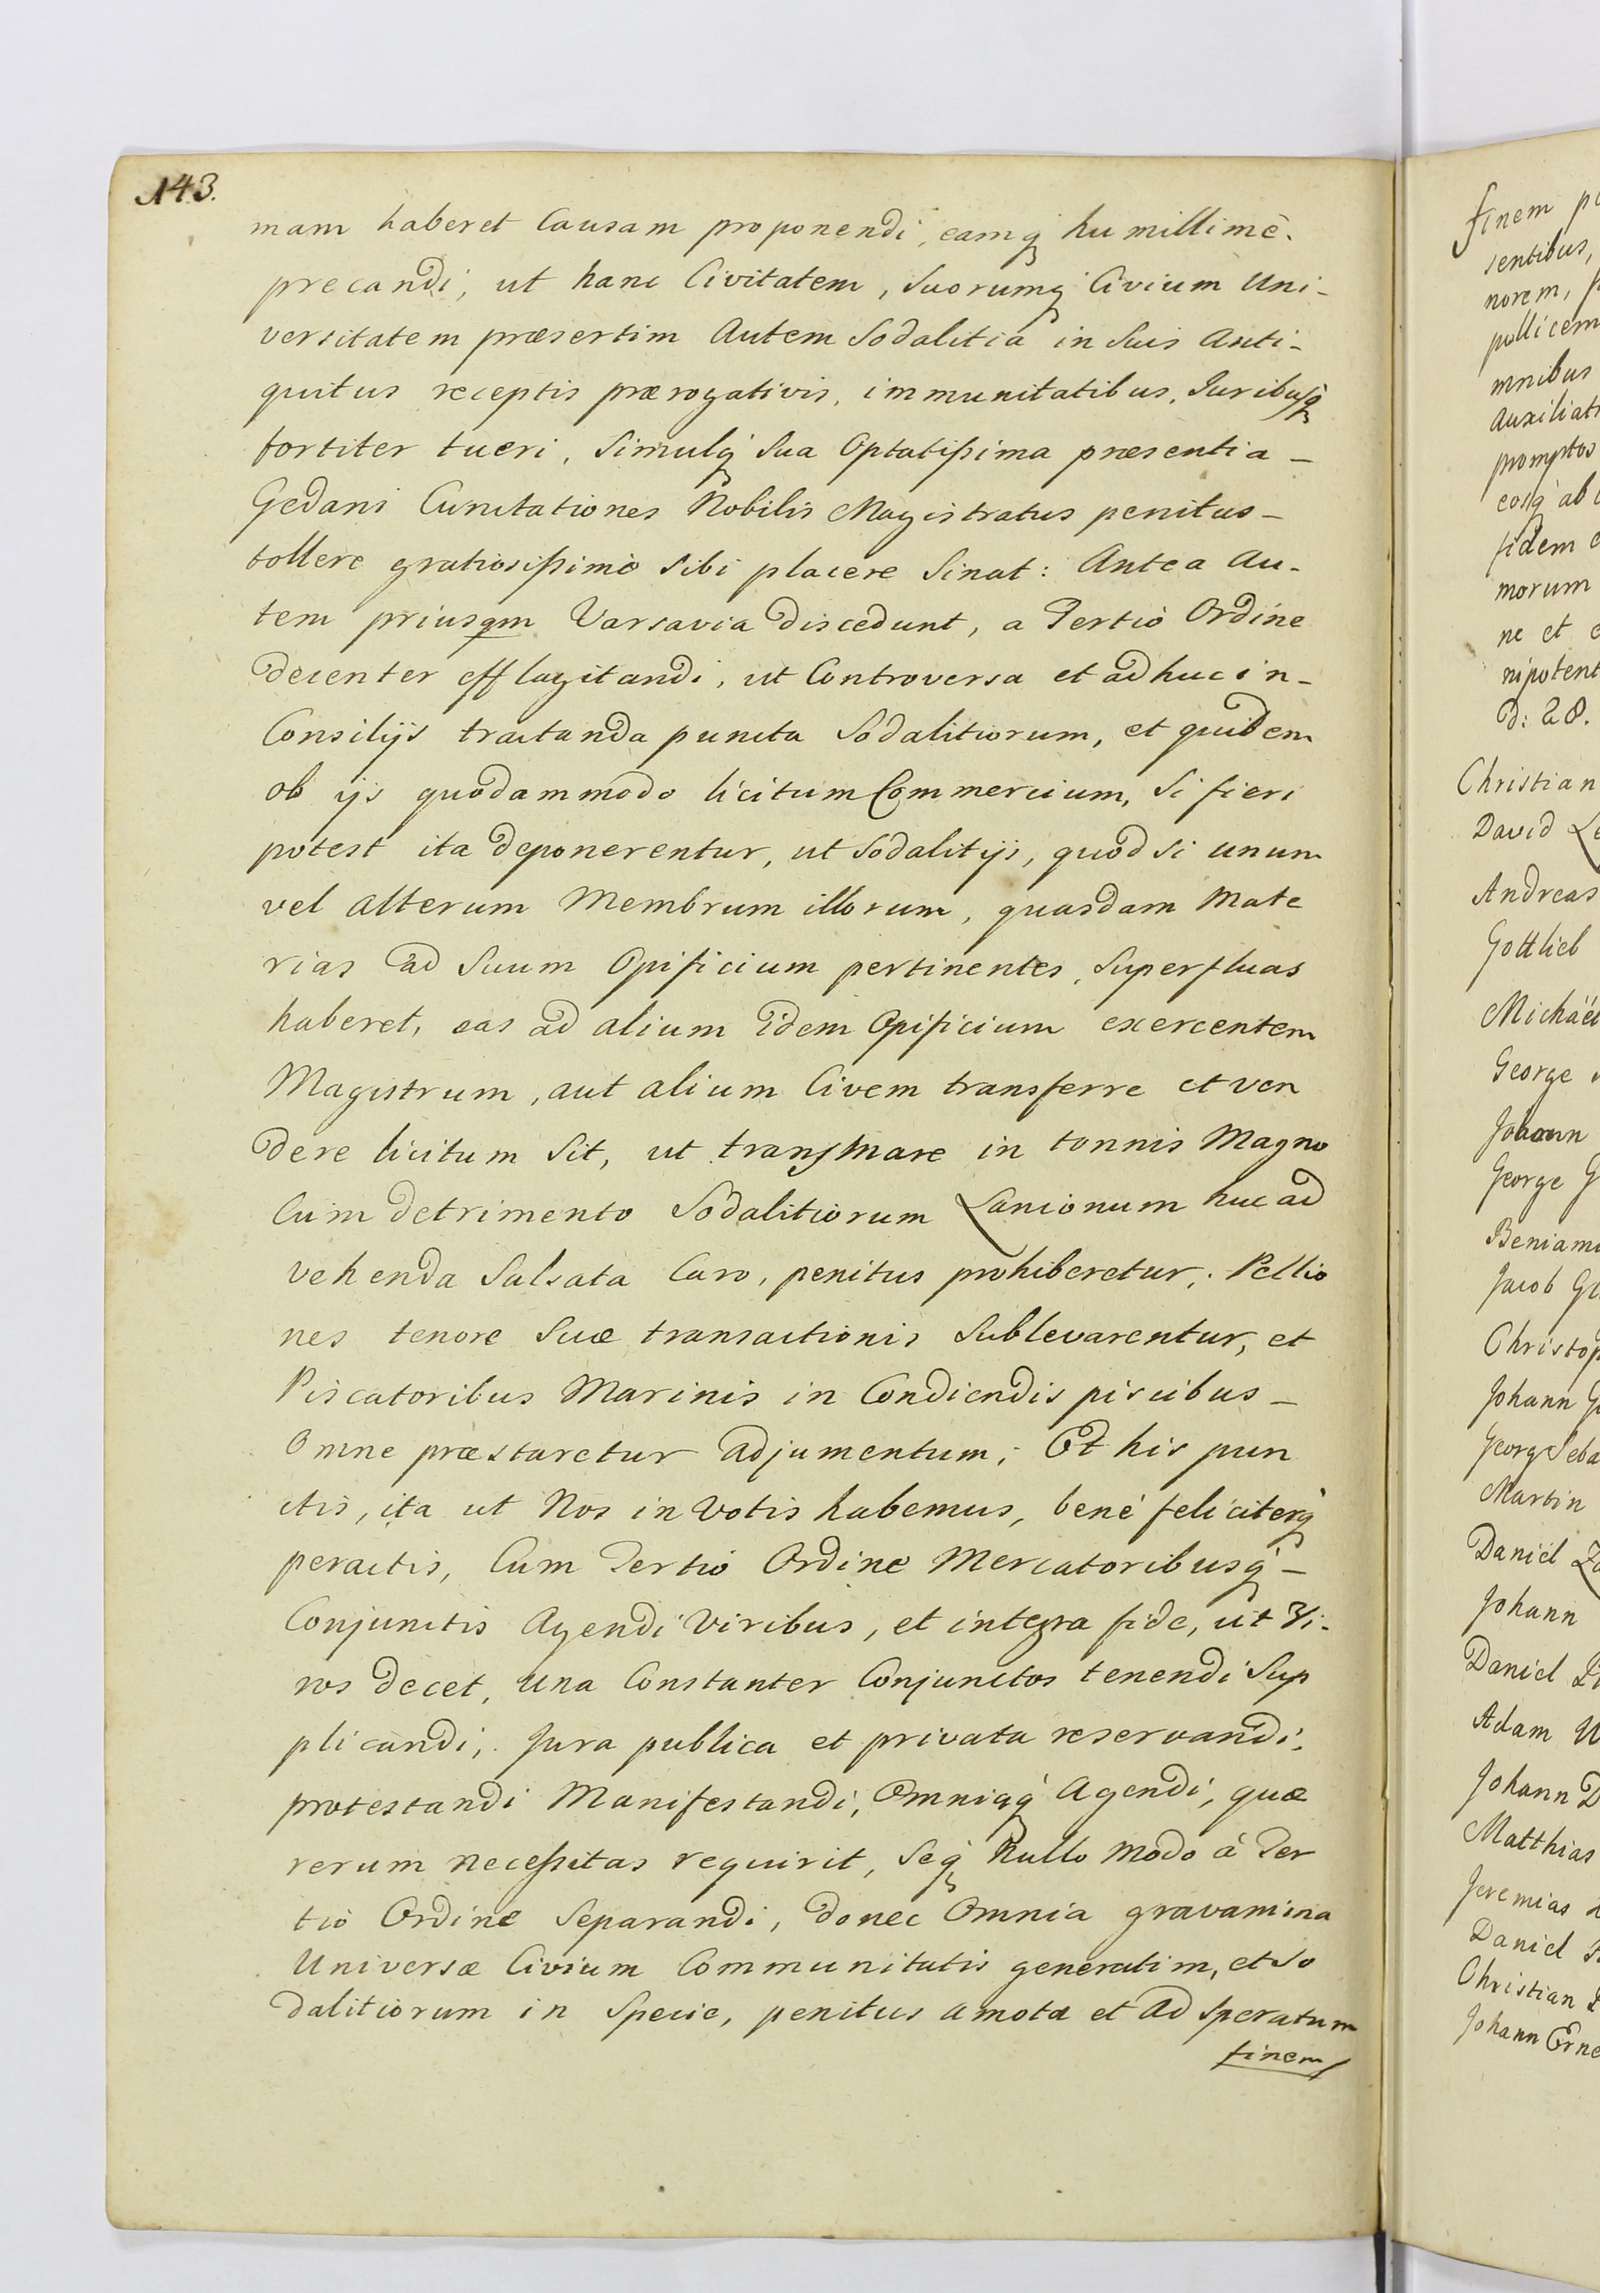 143.
mam haberet Causam proponendi, eamq humillimè
precandi, ut hanc Civitatem, Suorumq Civium Uni-
versitatem præsertim Autem Sodalitia in Suis Anti-
quitus receptis prærogativis, immunitatibus, Juribusq
fortiter tueri, Simulq Sua Optatißima præsentia –
Gedani Cunctationes Nobilis Magistratus penitus –
tollere gratiosißimè sibi placere Sinat: Antea Au-
tem priusqm Varsavia discedunt, a Tertio Ordine
decenter efflagitandi, ut Controversa et adhuc in-
Consilijs tractanda puncta Sodalitiorum, et quidem
ob ijs quodammodo licitum Commercium, Si fieri
potest ita deponerentur, ut Sodalitijs, quod si unum
vel alterum Membrum illorum, quasdam Mate
rias ad Suum Opificium pertinentes, Superfluas
haberet, eas ad alium idem Opificium exercentem
Magistrum, aut alium Civem transferre et ven
dere licitum Sit, ut transmare in tonnis Magno
Cum detrimento Sodalitiorum Lanionum huc ad
vehenda Salsata Caro, penitus prohiberetur; Pellio
nes tenore Suæ transactionis Sublevarentur, et
Piscatoribus Marinis in Condiendis piscibus –
Omne præstaretur adjumentum; Et his pun
ctis, ita ut Nos in Votis habemus, benè feliciterq
peractis, Cum Tertio Ordine Mercatoribusq –
Conjunctis Agendi Viribus, et integra fide, ut Vi-
ros decet, una Constanter Conjunctos tenendi Sup
plicandi, Jura publica et privata reservandi,
protestandi Manifestandi, Omniaq Agendi, quæ
rerum neceßitas requirit, Seq Nullo Modo à Ter
tio Ordine Separandi, donec Omnia gravamina
Universæ Civium Communitatis generatim, et So
dalitiorum in Specie, penitus amota et ad Speratum
finem
finem
sentibus,
norem,
pollicem
mnibus
Auxiliat
promptos
eosq ab
fidem
morum
ne et
nipotent
d: 28.
Christian
David
Andreas
Gottlieb
Michaël
George
Johann
George G
Beniam
Jacob
Christop
Johann
Georg Seba
Martin
Daniel
Johann
Daniel
Adam
Johann D
Matthias
Jeremias
Daniel
Christian
Johann Erne